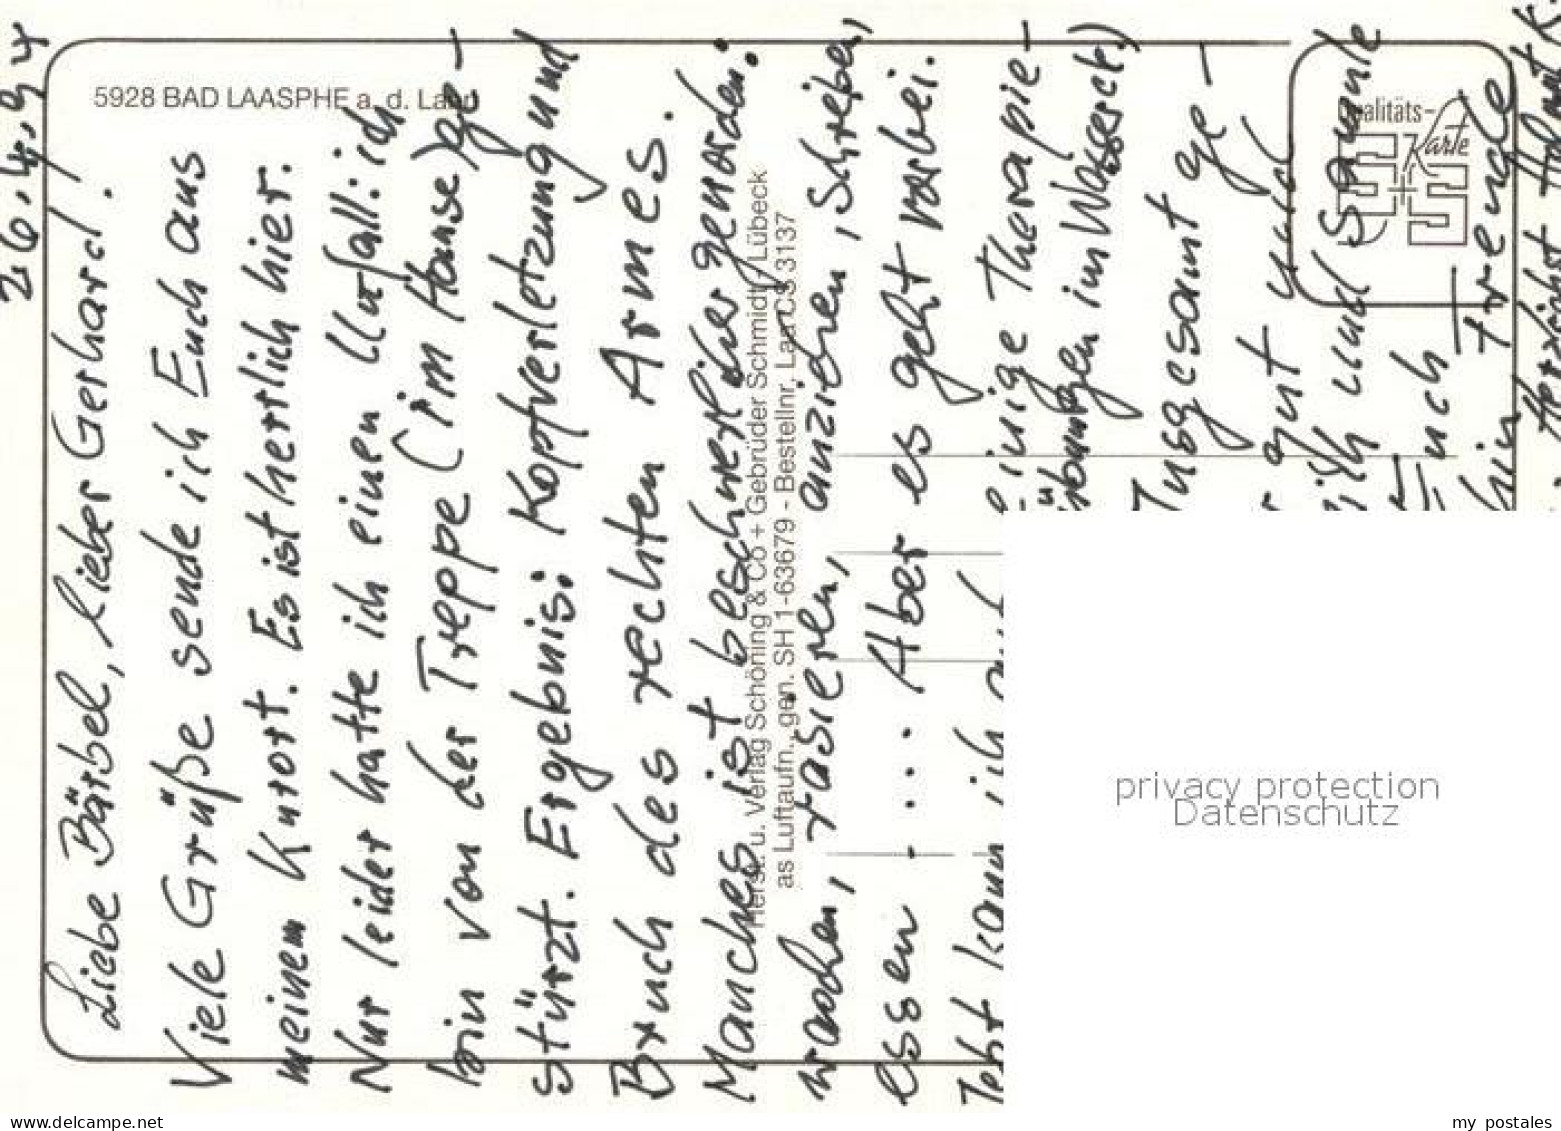 26.4.94
Liebe Bärbel, lieber Gerhard!
Viele Grüße sende ich Euch aus
meinem Kurort. Es ist herrlich hier.
Nur leider hatte ich einen Unfall: ich
bin von der Treppe (im Hause) ge-
stürzt. Ergebnis: Kopfverletzung und
Bruch des rechten Armes.
Manches ist beschwerlicher geworden:
waschen, rasieren, anziehen, schreiben,
essen .... Aber es geht vorbei.
Jetzt kann ich auch
einige Therapie-
übungen im Wasser
Insgesamt ge-
gut und
ich und
Euch
bin Freude
Herzlichst Helmut K.
5928 BAD LAASPHE a. d. Lahn
Herst. u. Verlag Schöning & Co + Gebrüder Schmidt, Lübeck
as Luftaufn., gen. SH 1-63679 - Bestellnr. Laa CS 3137
Qualitäts-
Karte
S+S
privacy protection
Datenschutz
www.delcampe.net
my_postales